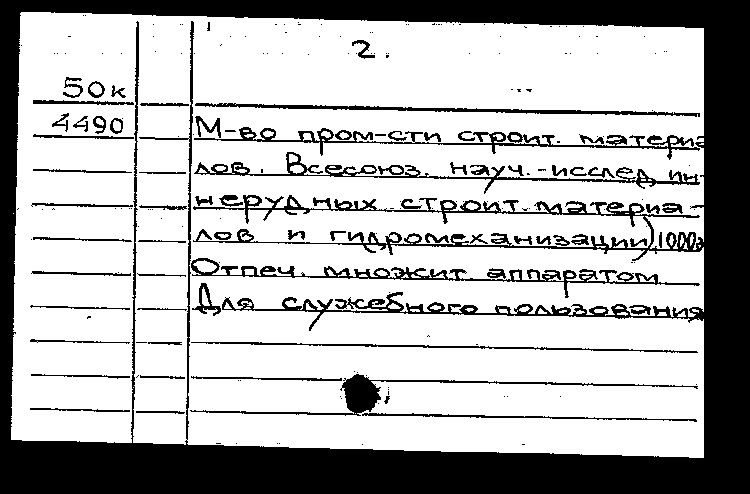 2.
50к
4490 М-во пром-сти строит. материа
лов. Всесоюз. науч.-исслед. ин-
нерудных строит. материа-
лов и гидромеханизации), 1000э
Отпеч. множит аппаратом
Для служебного пользования